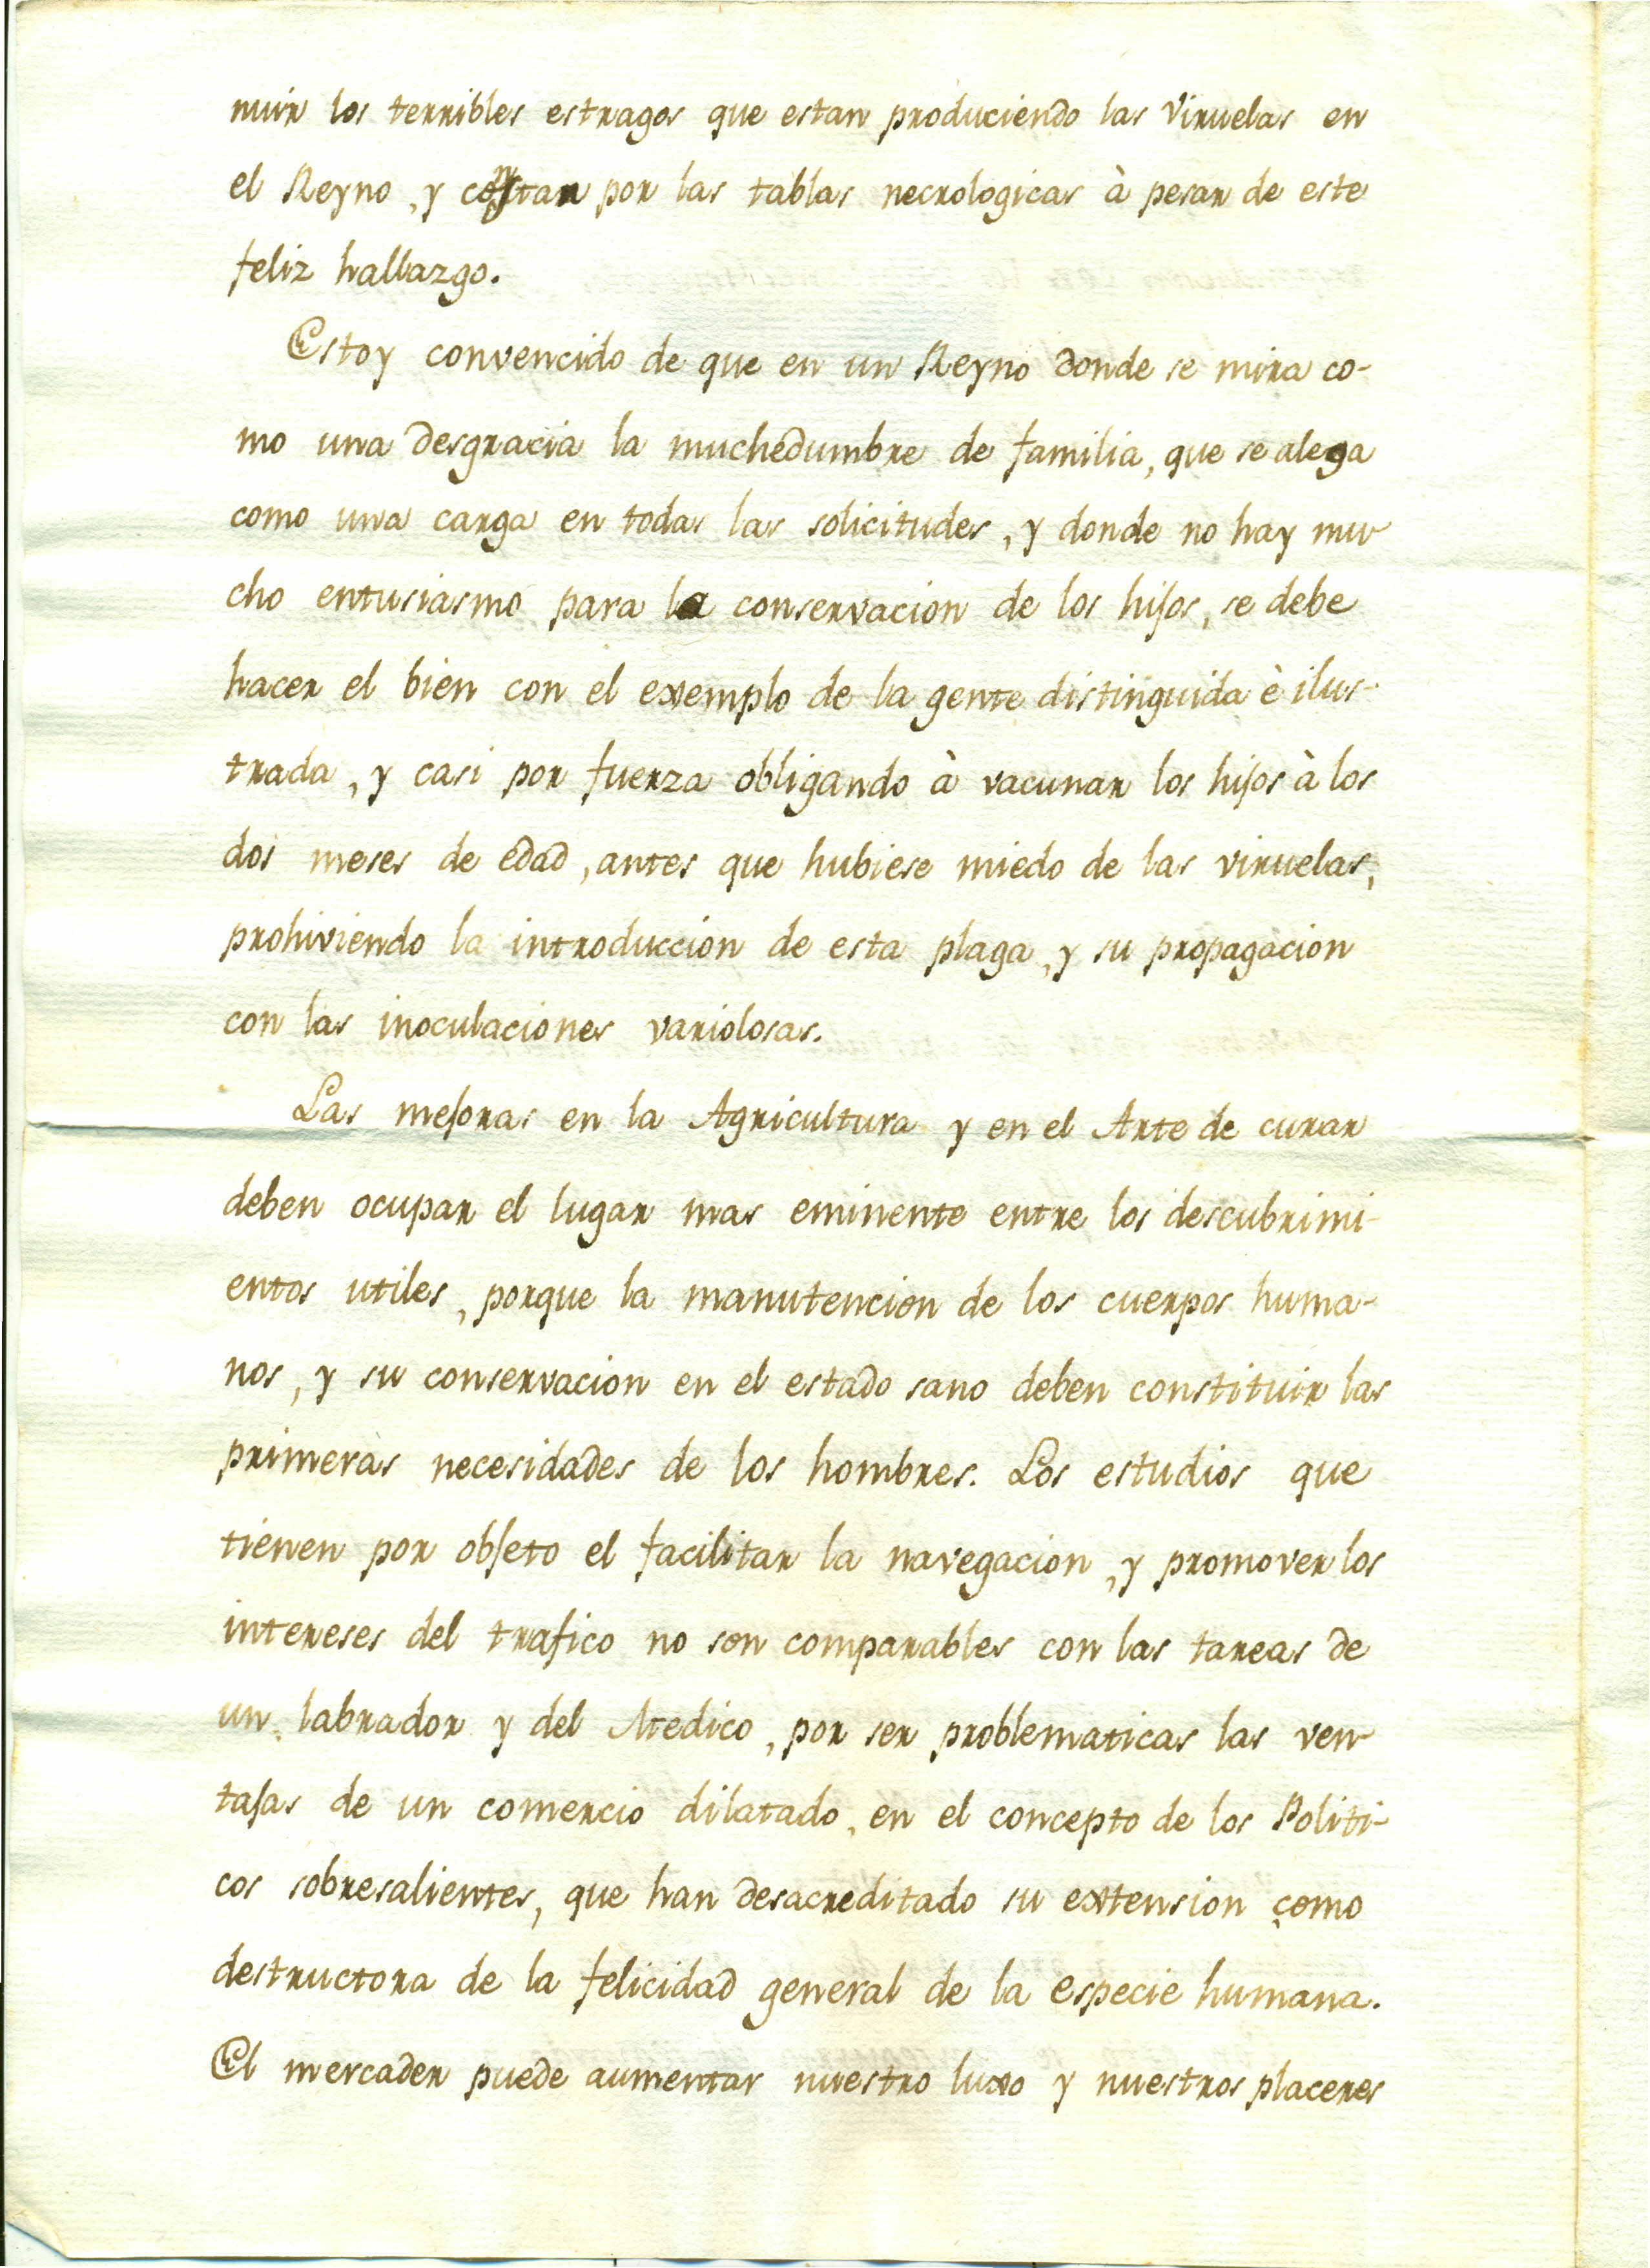 nuir los terribles estragos que estan produciendo las Viruelas en
el Reyno, y constan por las tablas necrologicas à pesar de este
feliz hallazgo.
Estoy convencido de que en un Reyno donde se mira co-
mo una desgracia la muchedumbre de familia, que se alega
como una carga en todas las solicitudes, y donde no hay mu
cho entusiasmo para la conservacion de los hijos, se debe
hacer el bien con el exemplo de la gente distinguida è ilus-
trada, y casi por fuerza obligando à vacunar los hijos à los
dos meses de edad, antes que hubiese miedo de las viruelas,
prohiviendo la introduccion de esta plaga, y su propagacion
con las inoculaciones variolosas.
Las mejoras en la Agricultura y en el Arte de curar
deben ocupar el lugar mas eminente entre los descubrimi-
entos utiles, porque la manutencion de los cuerpos huma-
nos, y su conservacion en el estado sano deben constituir las
primeras necesidades de los hombres. Los estudios que
tienen por objeto el facilitar la navegacion, y promover los
intereses del trafico no son comparables con las tareas de
un labrador y del Medico, por ser problematicas las ven
tajas de un comercio dilatado, en el concepto de los Politi-
cos sobresalientes, que han desacreditado su extension como
destructora de la felicidad general de la especie humana.
El mercader puede aumentar nuestro luxo y nuestros placeres